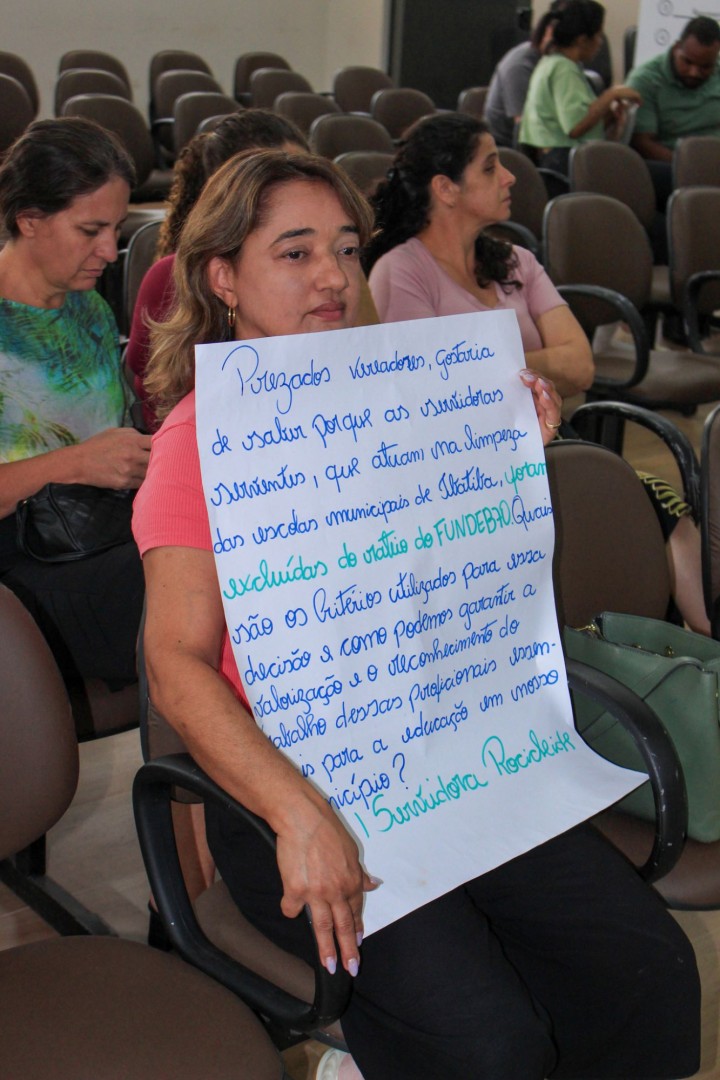 Prezados vereadores, gostaria
de saber porque as servidoras
serventes, que atuam na limpeza
das escolas municipais de Ibatiba, foram
excluídas do rateio do FUNDEB70. Quais
são os critérios utilizados para essa
decisão e como podemos garantir a
valorização e o reconhecimento do
trabalho dessas profissionais essen-
is para a educação em nosso
nicípio?
Servidora Rocicleide